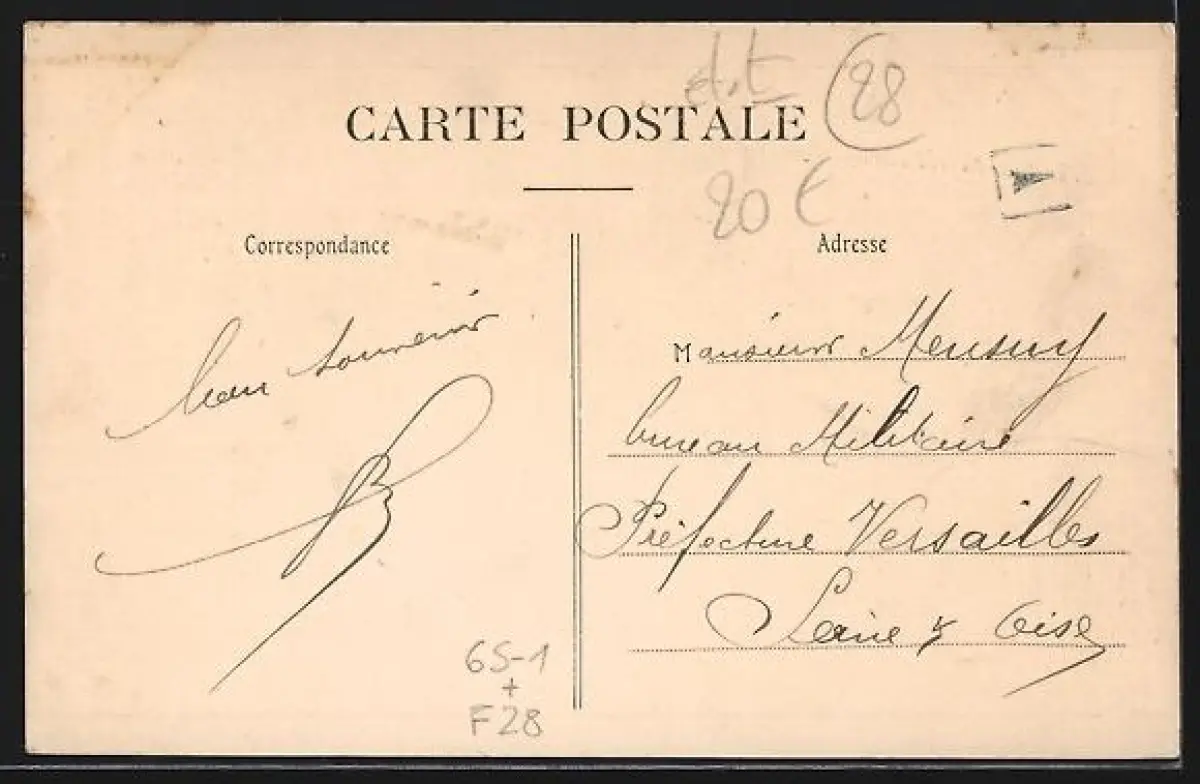 CARTE POSTALE
28
20 €
Correspondance
Adresse
Bon souvenir
Monsieur
bureau Militaire
Préfecture Versailles
Seine & Oise
6S-1
+
F28